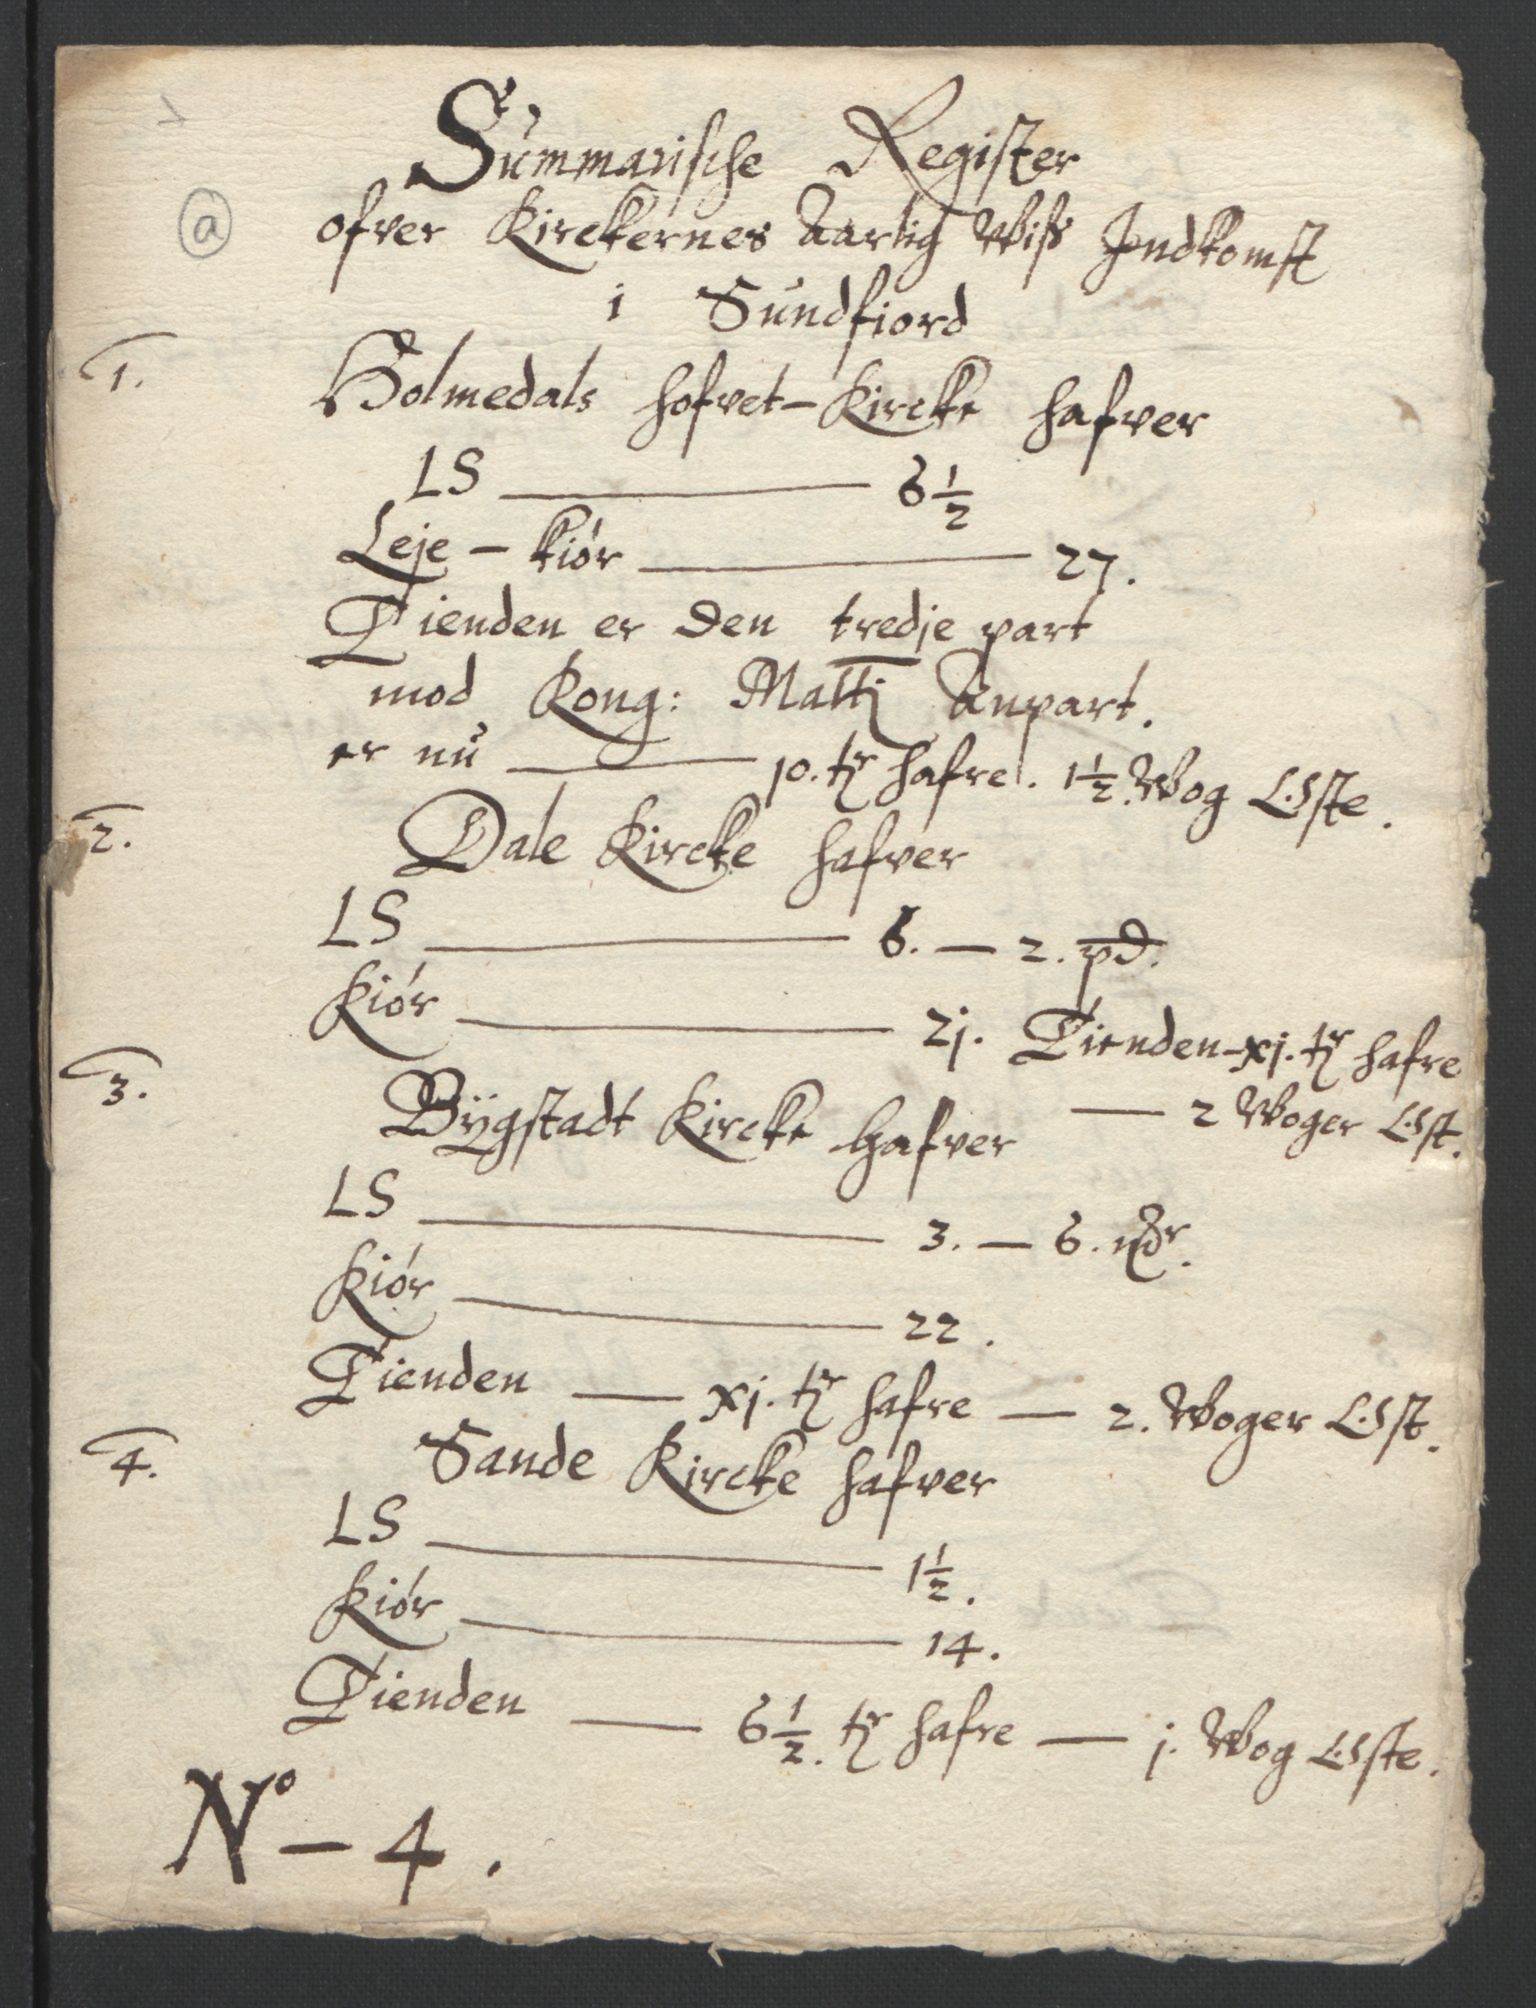 Summarische Register
a
ofver Kirckernes Aarlig Wiss Indkomst
i Sundfiord
1. Holmedals hofvet-Kircke hafver
LS — 6 1/2
Leje-kiör — 27.
Tienden er den tredje part
mod Kong: Mattj Anpart.
er nu — 10. tr hafre. 1 1/2 Wog Ost.
2. Dale Kircke hafver
LS — 6. — 2. pd.
Kiör — 2j. Tienden-xj. tr hafre
— 2 Woger Ost.
3. Bÿgstadt Kircke hafver
LS — 3. — 6. mkr.
Kiör — 22.
Tienden — xj. tr hafre — 2. Woger Ost.
4. Sande Kircke hafver
LS — 1 1/2.
Kiör — 14.
Tienden — 6 1/2. tr hafre — j. Wog Oste.
No — 4.